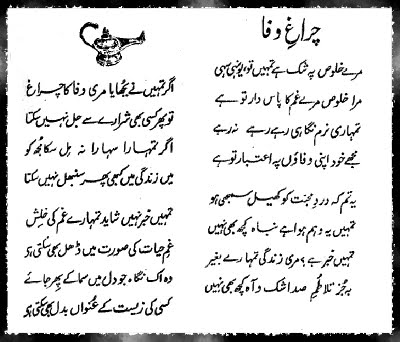 چراغِ وفا
مرے خلوص پہ شک ہے تمہیں تو، یونہی سہی
مرا خلوص مرے غم کا پاس دار تو ہے
تمہاری نرم نگاہی رہے رہے نہ رہے
مجھے خود اپنی وفاؤں پہ اعتبار تو ہے
یہ تم کہ دردِ محبت کو کھیل سمجھی ہو
تمہیں یہ وہم ہوا ہے نباہ کچھ بھی نہیں
تمہیں خبر ہے؟ مری زندگی تمہارے بغیر
بہ جُز تلاطُمِ صد اشک و آہ کچھ بھی نہیں
اگر تمہیں نے بجھایا مری وفا کا چراغ
تو پھر کسی بھی شرارے سے جل نہیں سکتا
اگر تمہارا سہارا نہ مل سکا مجھ کو
میں زندگی میں کبھی پھر سنبھل نہیں سکتا
تمہیں خبر نہیں شاید تمہارے غم کی خلش
غمِ حیات کی صورت میں ڈھل بھی سکتی ہو
وہ اک نگاہ جو دل میں سما کے پھر جائے
کسی کی زیست کے عُنواں بدل بھی سکتی ہو